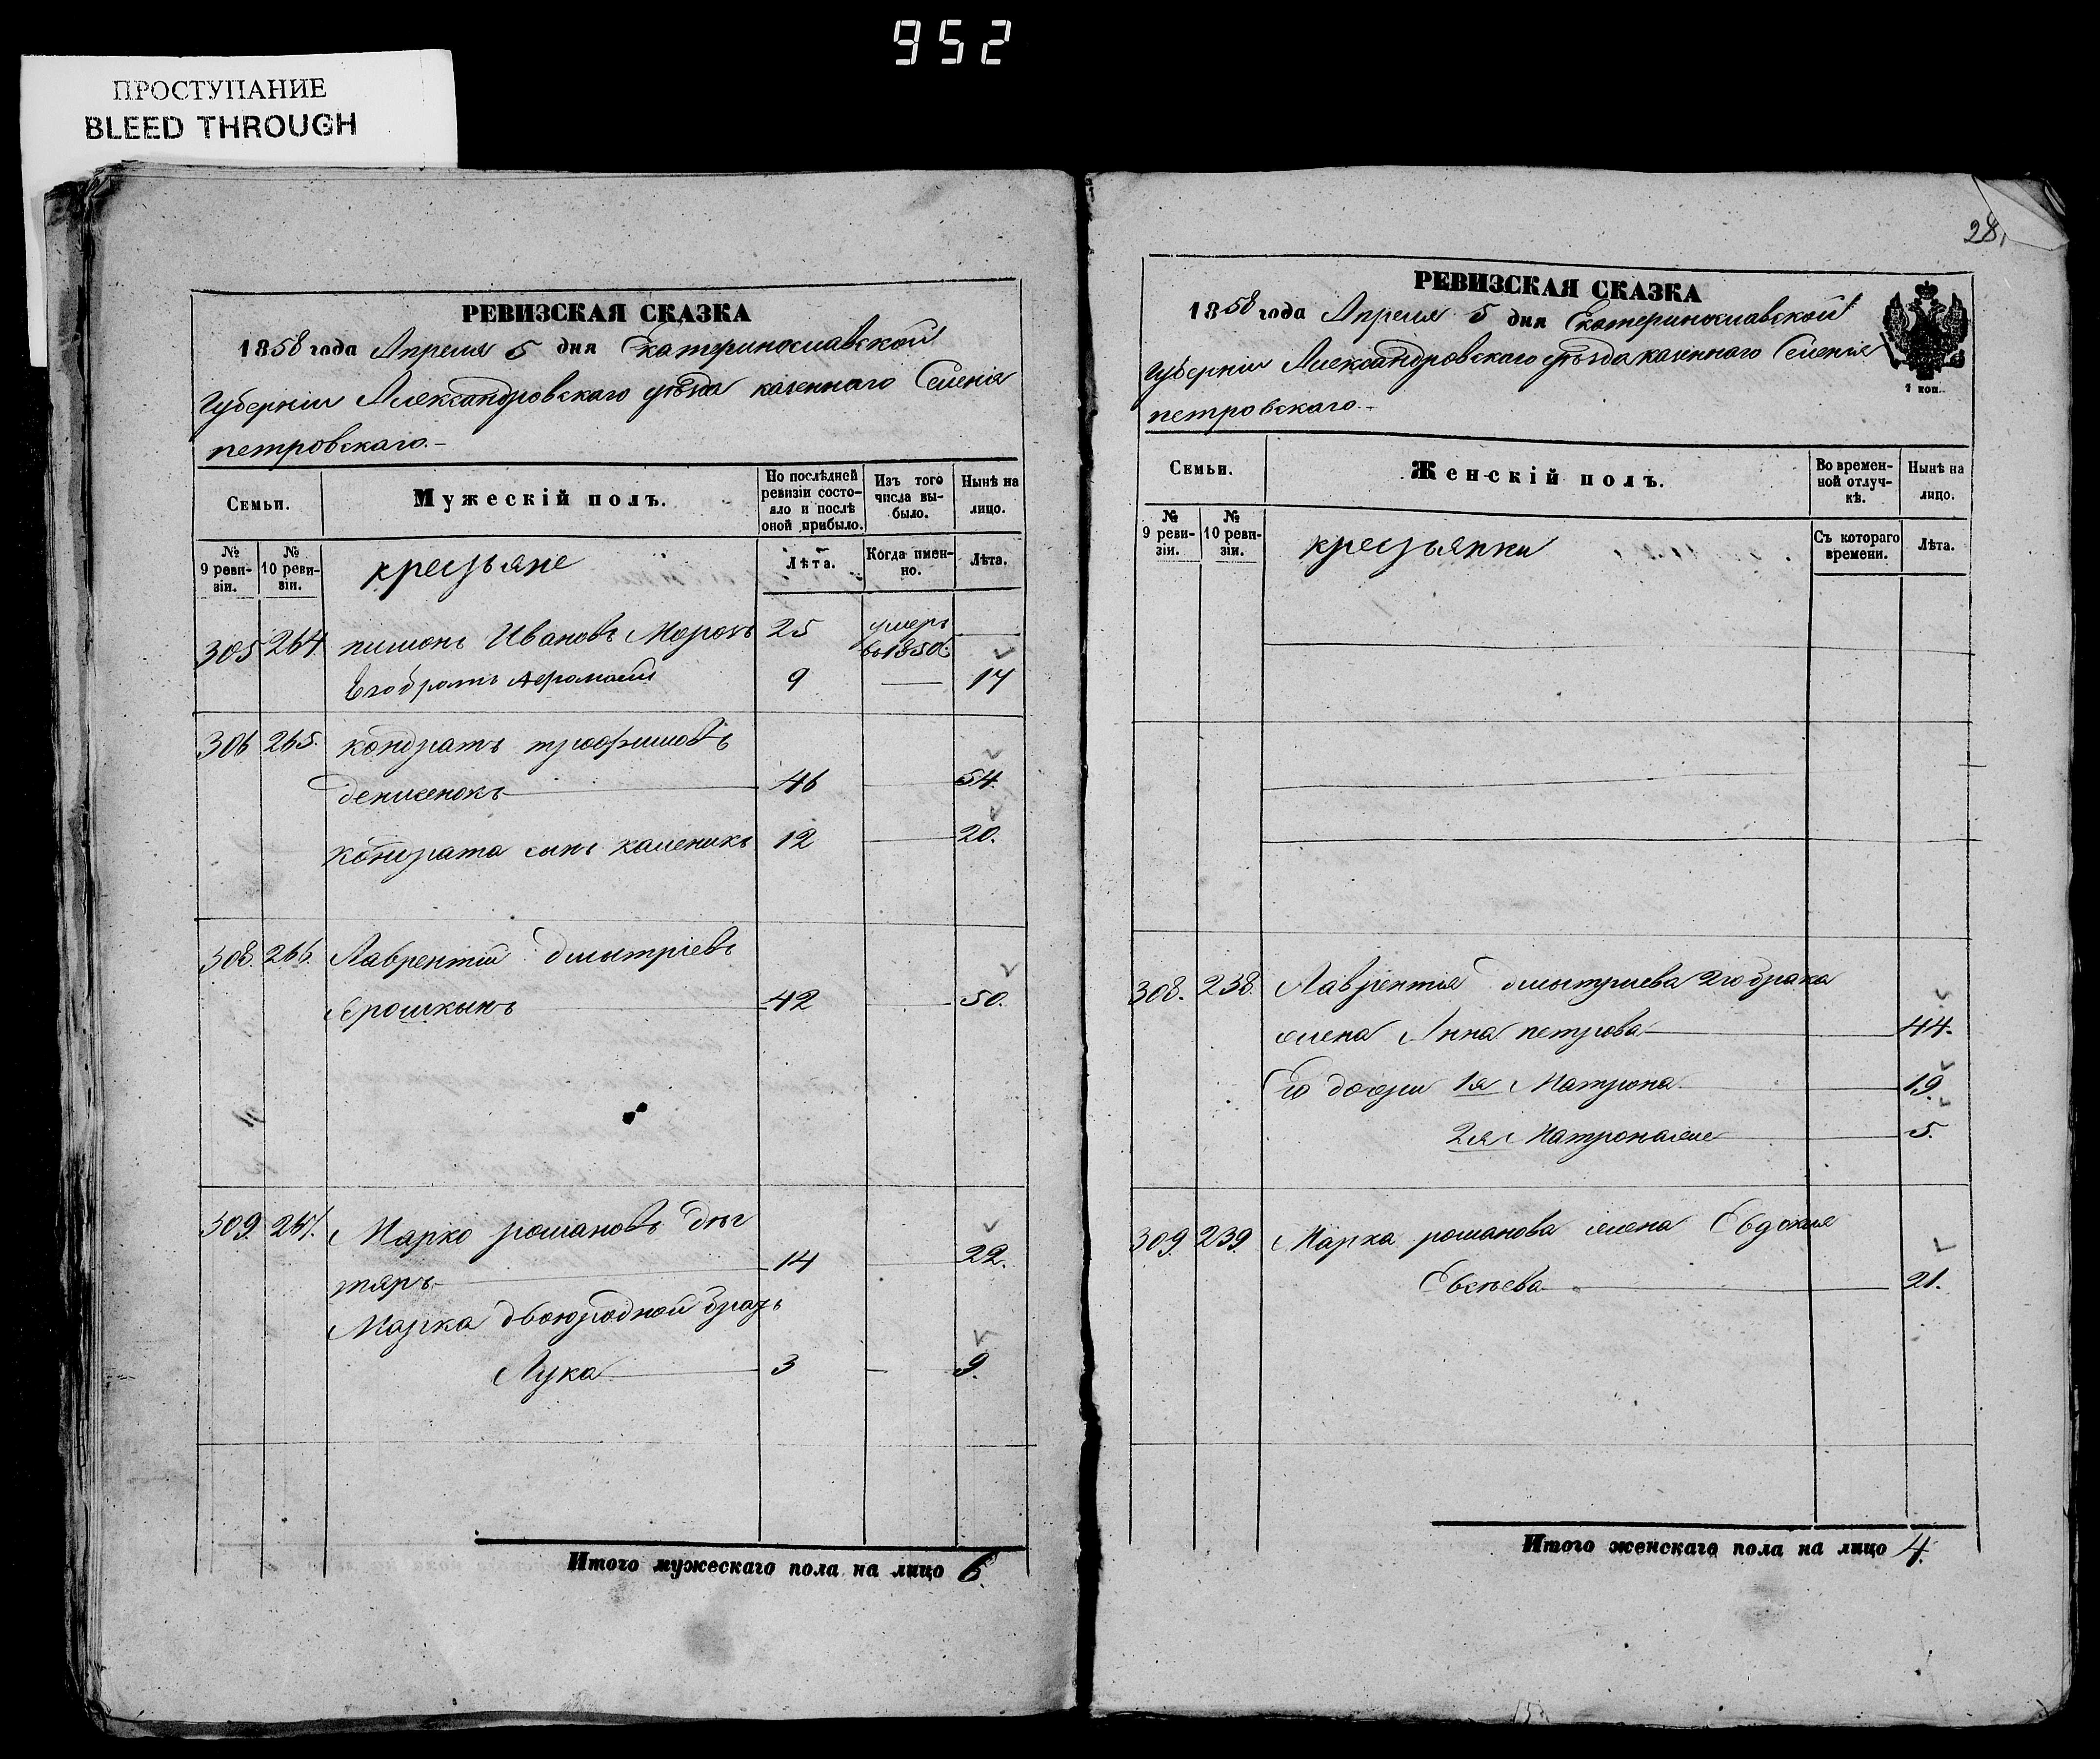 952
ПРОСТУПАНИЕ
BLEED THROUGH
РЕВИЗСКАЯ СКАЗКА
1858 года Апреля 5 дня Екатеринославской
Губерніи Александровскаго уѣзда казеннаго Селенія
петровскаго.-
Семьи.
Мужескій полъ.
По послѣдней ревизіи состояло и послѣ оной прибыло.
Изъ того числа выбыло.
Нынѣ на лицо.
№ 9 ревизіи.
№ 10 ревизіи.
крестьяне
Лѣта.
Когда именно.
Лѣта.
305 264. пимонъ Ивановъ Морозъ 25 умеръ въ 1850
Его братъ Афонасій 9 — 17
306 265. кондратъ трофимовъ
денисенокъ 46 54.
кондрата сынъ каленикъ 12 20.
308. 266. Лаврентій дмытріевъ
Ярошкынъ 42 50.
309. 267. Марко романовъ дег
тяръ 14 22.
Марка двоюродной братъ
Лука 3 9.
Итого мужескаго пола на лицо 6.
28.
РЕВИЗСКАЯ СКАЗКА
1858 года Апреля 5 дня Екатеринославской
Губерніи Александровскаго уѣзда казеннаго Селенія
петровскаго.-
1 коп.
Семьи.
Женскій полъ.
Во временной отлучкѣ.
Нынѣ на лицо.
№ 9 ревизіи.
№ 10 ревизіи.
крестьянки
Съ котораго времени.
Лѣта.
308. 238. Лаврентія дмытриева 2го брака
жена Анна петрова 44.
Его дочери 1я Матрона 19.
2я Матрона же 5.
309 239. Марка романова жена Евдокия
Евсѣева 21.
Итого женскаго пола на лицо 4.